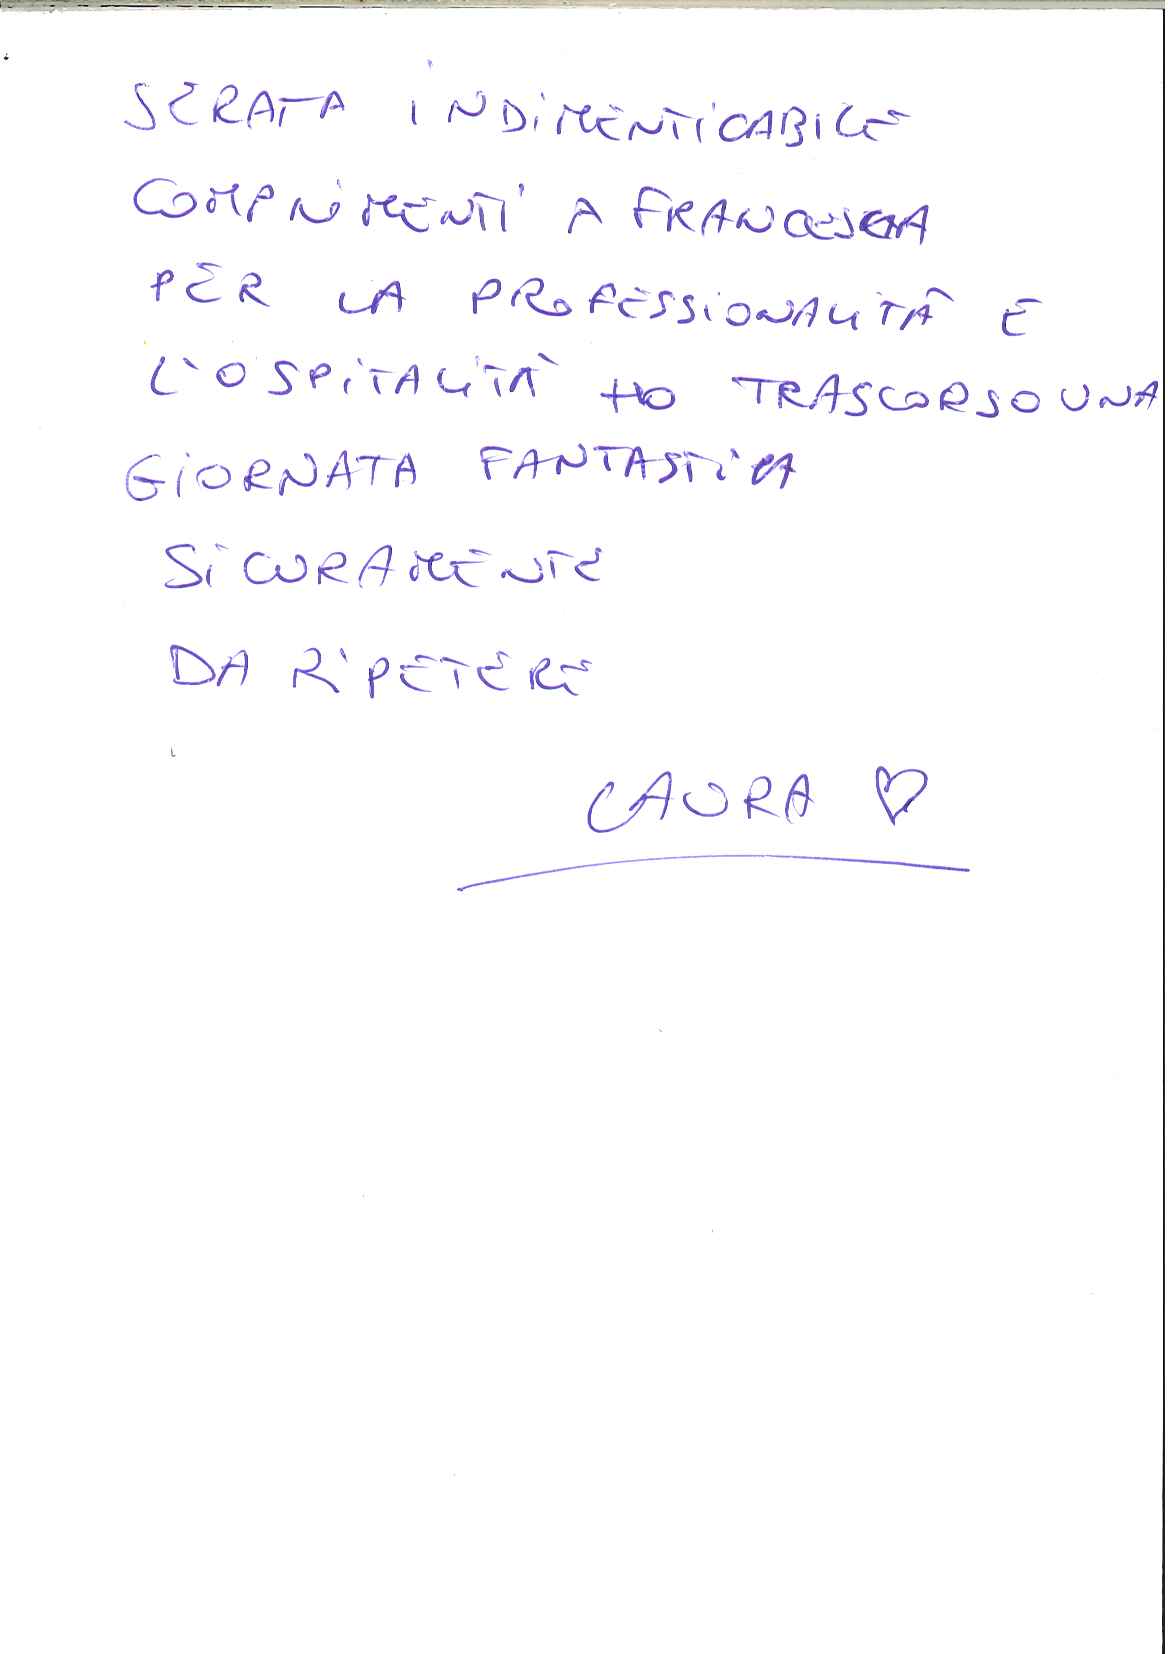 SERATA INDIMENTICABILE
COMPLIMENTI A FRANCESCA
PER LA PROFESSIONALITÀ E
L'OSPITALITÀ HO TRASCORSO UNA
GIORNATA FANTASTICA
SICURAMENTE
DA RIPETERE
LAURA ♡